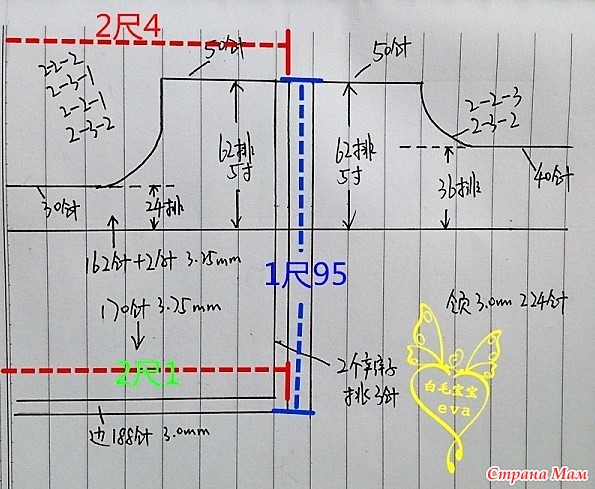 2尺4
50针
50针
2-2-2
2-3-1
2-2-1
2-3-2
2-2-3
2-3-2
62排
5寸
62排
5寸
30针
24排
36排
40针
162针+2针 3.25mm
1尺95
170针 3.75mm
领 3.0mm 224针
2尺1
2个辛庄子
挑3针
白毛宝宝
eva
边188针 3.0mm
Страна Мам